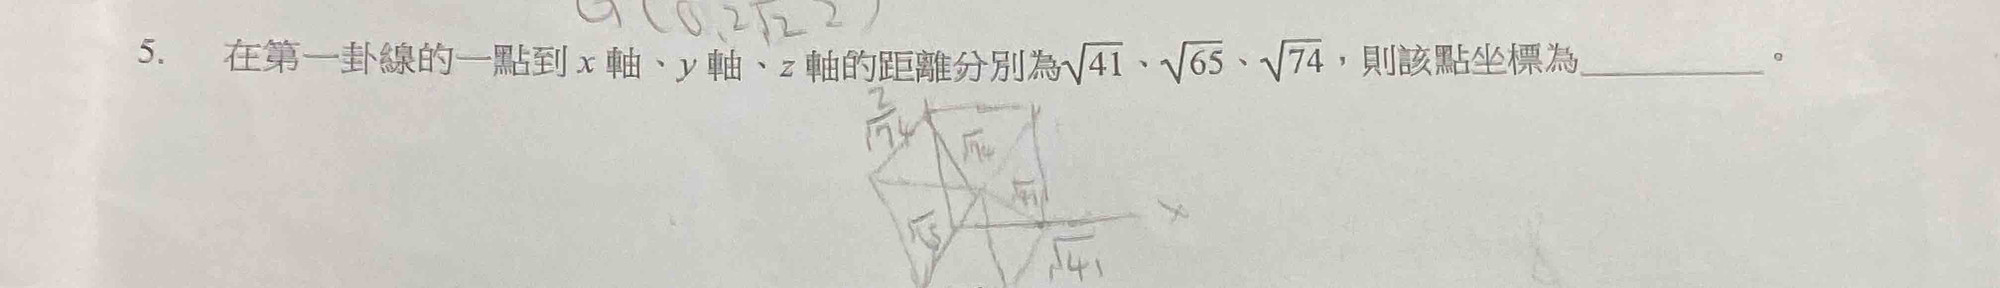 G(0,2√2 2)
5. 在第一卦線的一點到 x 軸、y 軸、z 軸的距離分別為√41、√65、√74，則該點坐標為＿＿＿＿＿。
z
√74
√74
√41
x
√65
√41